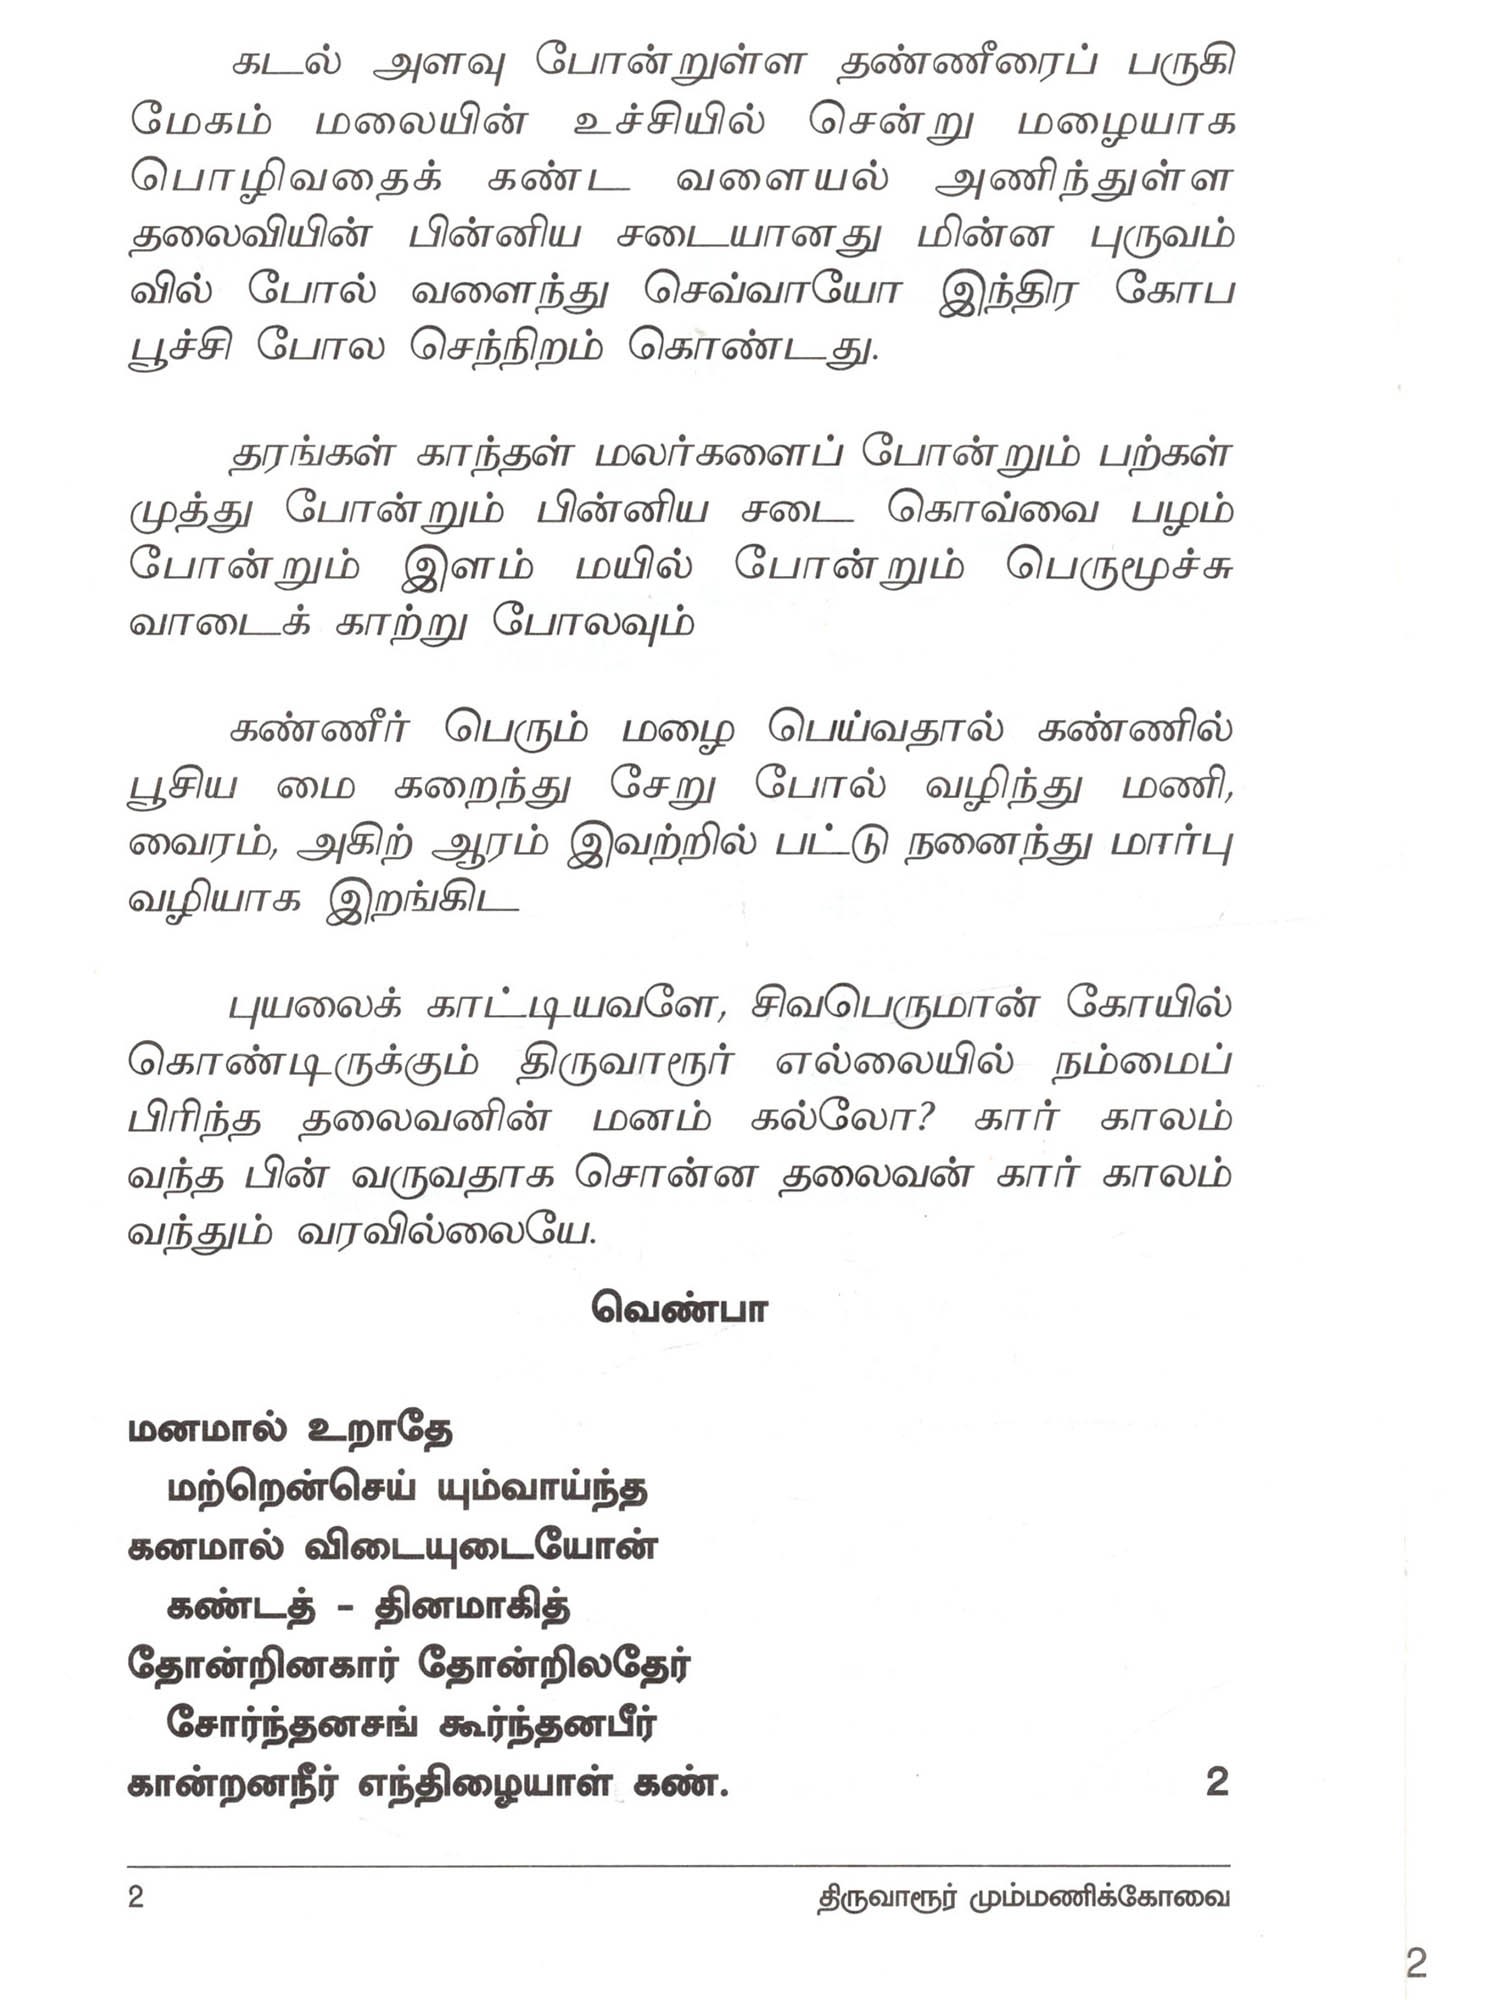 கடல் அளவு போன்றுள்ள தண்ணீரைப் பருகி
மேகம் மலையின் உச்சியில் சென்று மழையாக
பொழிவதைக் கண்ட வளையல் அணிந்துள்ள
தலைவியின் பின்னிய சடையானது மின்ன புருவம்
வில் போல் வளைந்து செவ்வாயோ இந்திர கோப
பூச்சி போல செந்நிறம் கொண்டது.
தரங்கள் காந்தள் மலர்களைப் போன்றும் பற்கள்
முத்து போன்றும் பின்னிய சடை கொவ்வை பழம்
போன்றும் இளம் மயில் போன்றும் பெருமூச்சு
வாடைக் காற்று போலவும்
கண்ணீர் பெரும் மழை பெய்வதால் கண்ணில்
பூசிய மை கறைந்து சேறு போல் வழிந்து மணி,
வைரம், அகிற் ஆரம் இவற்றில் பட்டு நனைந்து மார்பு
வழியாக இறங்கிட
புயலைக் காட்டியவளே, சிவபெருமான் கோயில்
கொண்டிருக்கும் திருவாரூர் எல்லையில் நம்மைப்
பிரிந்த தலைவனின் மனம் கல்லோ? கார் காலம்
வந்த பின் வருவதாக சொன்ன தலைவன் கார் காலம்
வந்தும் வரவில்லையே.
வெண்பா
மனமால் உறாதே
மற்றென்செய் யும்வாய்ந்த
கனமால் விடையுடையோன்
கண்டத் - தினமாகித்
தோன்றினகார் தோன்றிலதேர்
சோர்ந்தனசங் கூர்ந்தனபீர்
கான்றனநீர் எந்திழையாள் கண். 2
2 திருவாரூர் மும்மணிக்கோவை
2